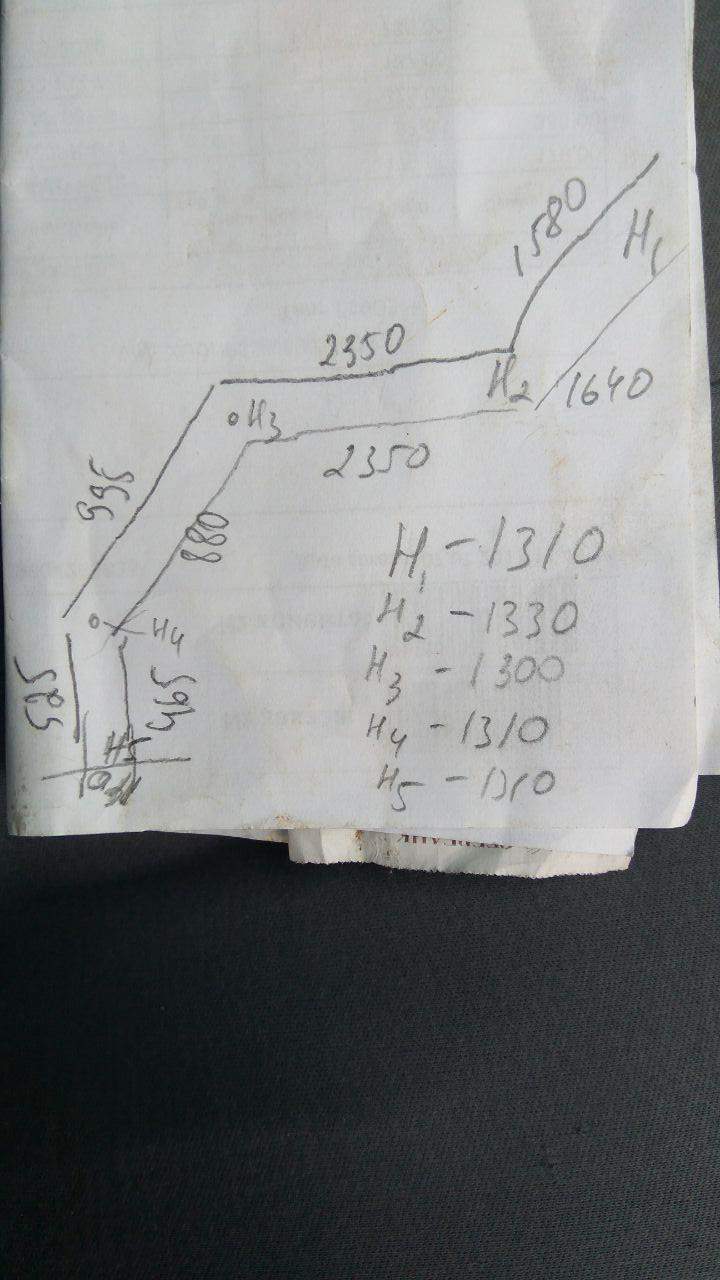 1580
H1
2350
H2
1640
H3
2350
995
880
H4
525
495
H5
H1 - 1310
H2 - 1330
H3 - 1300
H4 - 1310
H5 - 1310